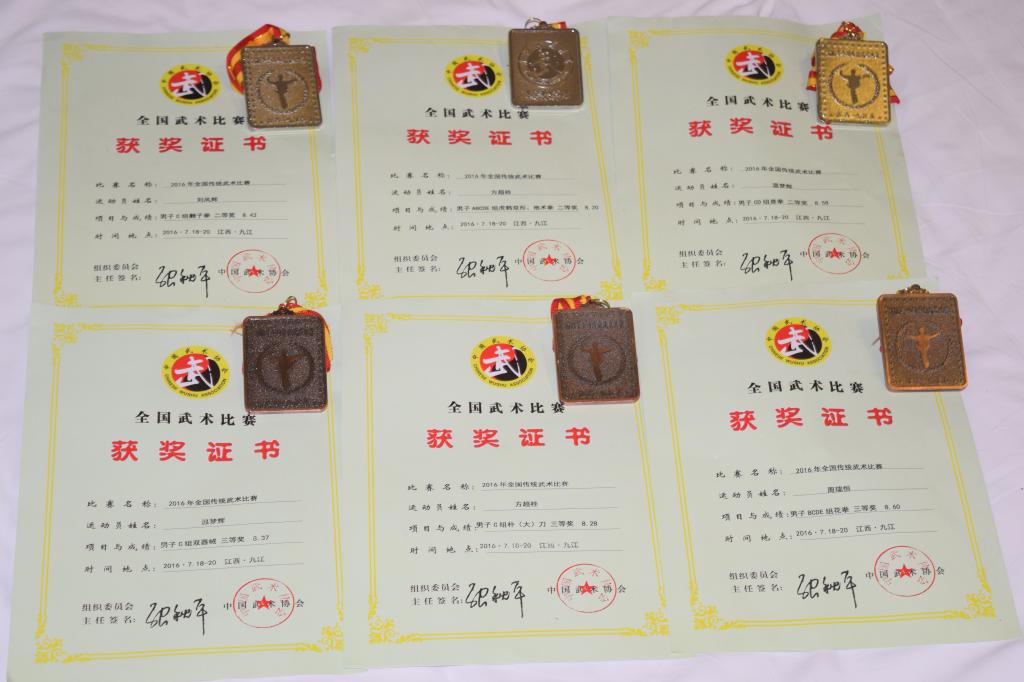 中国武术协会
武
CHINESE WUSHU ASSOCIATION
全国武术比赛
获奖证书
比赛名称: 2016年全国传统武术比赛
运动员姓名: 刘凤辉
项目与成绩: 男子C组翻子拳 二等奖 8.42
时间地点: 2016·7.18-20 江西·九江
组织委员会
主任签名:
中国武术协会
中国武术协会
武
CHINESE WUSHU ASSOCIATION
全国武术比赛
获奖证书
比赛名称: 2016年全国传统武术比赛
运动员姓名: 方超栓
项目与成绩: 男子ABCDE组虎鹤双形、地术拳 二等奖 8.20
时间地点: 2016·7.18-20 江西·九江
组织委员会
主任签名:
中国武术协会
中国武术协会
武
CHINESE WUSHU ASSOCIATION
全国武术比赛
获奖证书
比赛名称: 2016年全国传统武术比赛
运动员姓名: 温梦辉
项目与成绩: 男子CD组查拳 二等奖 8.58
时间地点: 2016·7.18-20 江西·九江
组织委员会
主任签名:
中国武术协会
中国武术协会
武
CHINESE WUSHU ASSOCIATION
全国武术比赛
获奖证书
比赛名称: 2016年全国传统武术比赛
运动员姓名: 温梦辉
项目与成绩: 男子C组双器械 三等奖 8.37
时间地点: 2016·7.18-20 江西·九江
组织委员会
主任签名:
中国武术协会
中国武术协会
武
CHINESE WUSHU ASSOCIATION
全国武术比赛
获奖证书
比赛名称: 2016年全国传统武术比赛
运动员姓名: 方超栓
项目与成绩: 男子C组朴(大)刀 三等奖 8.28
时间地点: 2016·7.18-20 江西·九江
组织委员会
主任签名:
中国武术协会
中国武术协会
武
CHINESE WUSHU ASSOCIATION
全国武术比赛
获奖证书
比赛名称: 2016年全国传统武术比赛
运动员姓名: 周瑞恒
项目与成绩: 男子BCDE组花拳 三等奖 8.60
时间地点: 2016·7.18-20 江西·九江
组织委员会
主任签名:
中国武术协会